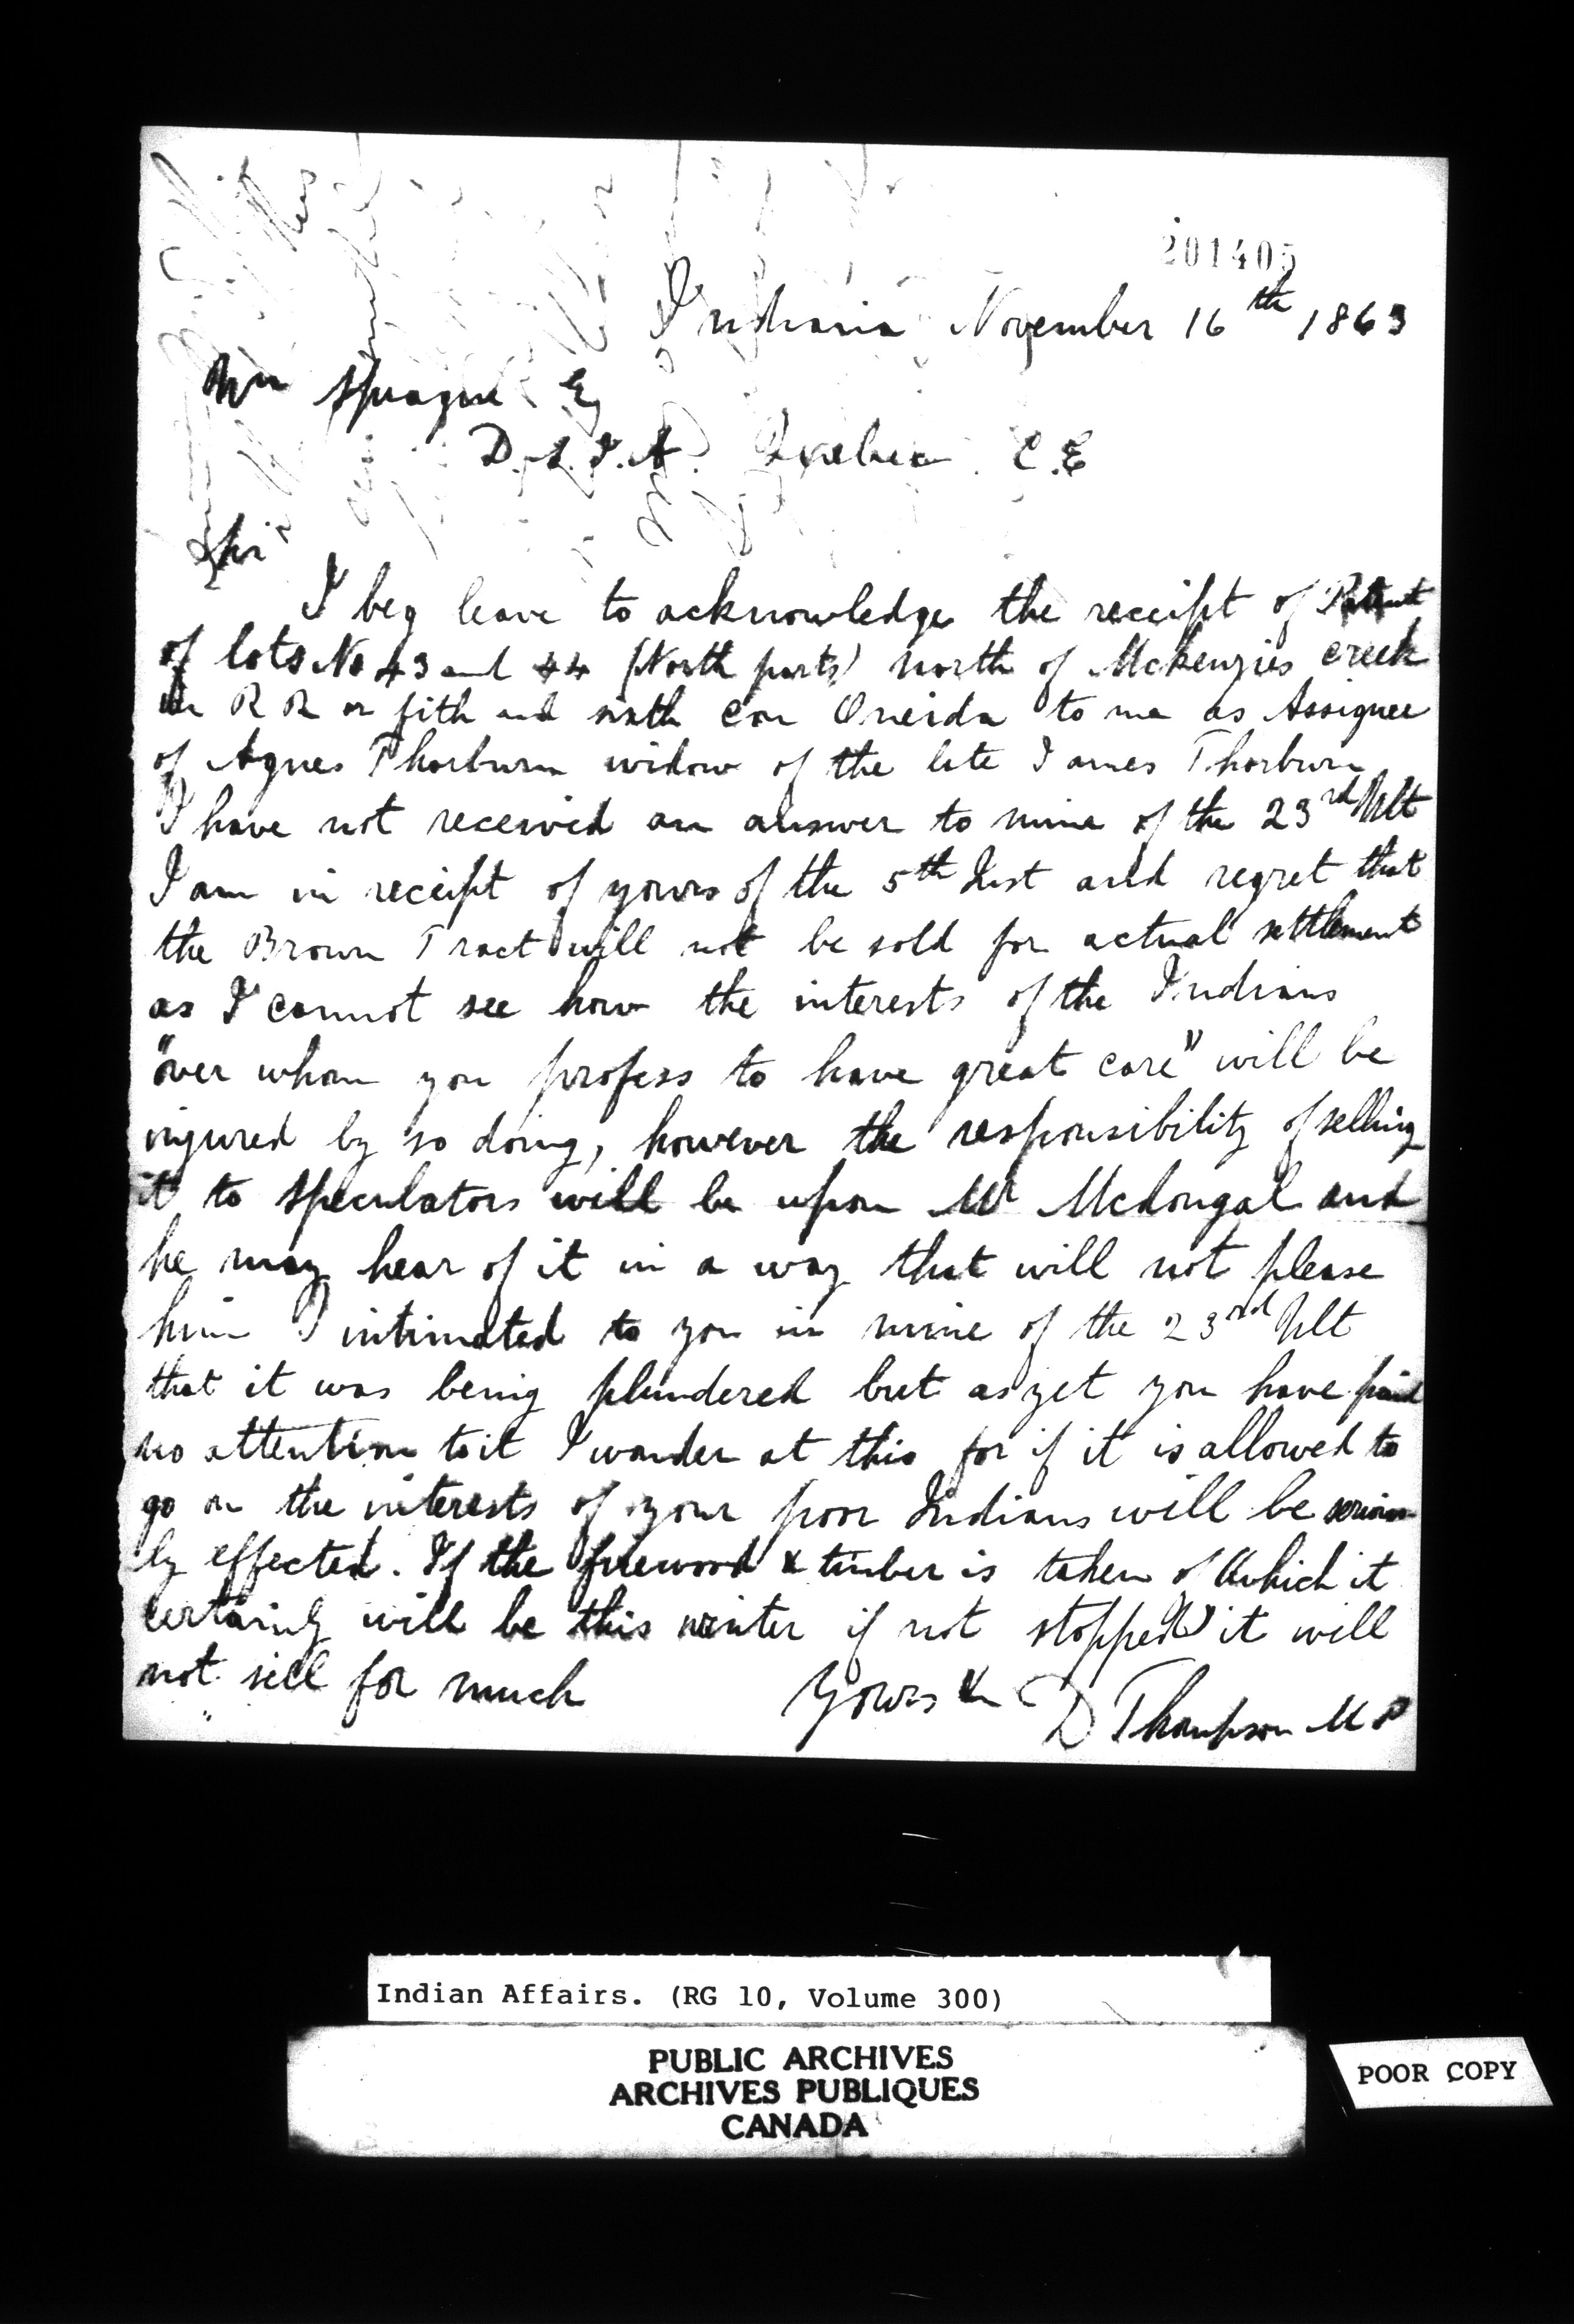 201405
Indiana November 16th 1863
Wm Spragge Esq
D.S.I.A. Quebec C.E
Sir
I beg leave to acknowledge the receipt of Patent
of lots No 43 and 44 (North parts) north of Mckenzies creek
in R R or fith and sixth con Oneida to me as Assignee
of Agnes Thorburn widow of the late James Thorburn
I have not received an answer to mine of the 23rd Ult
I am in receipt of yours of the 5th Inst and regret that
the Brown Tract will not be sold for actual settlement
as I cannot see how the interests of the Indians
"over whom you profess to have great care" will be
injured by so doing, however the responsibility of selling
it to speculators will be upon Mr Mcdougal and
he may hear of it in a way that will not please
him I intimated to you in mine of the 23rd Ult
that it was being plundered but as yet you have paid
no attention to it I wonder at this for if it is allowed to
go on the interests of your poor Indians will be serious
ly effected. If the firewood & timber is taken of (which it
certainly will be this winter if not stopped) it will
not sell for much
Yours &c D Thompson M P
Indian Affairs. (RG 10, Volume 300)
PUBLIC ARCHIVES
ARCHIVES PUBLIQUES
CANADA
POOR COPY